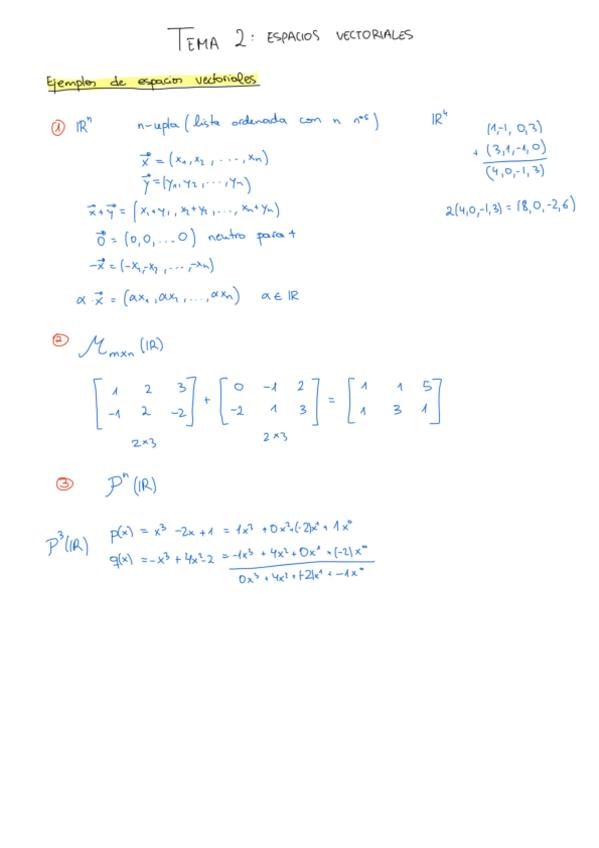 TEMA 2: ESPACIOS VECTORIALES
Ejemplos de espacios vectoriales
① ℝⁿ n-upla (lista ordenada con n nºs)
x⃗ = (x₁, x₂, ..., xₙ)
y⃗ = (y₁, y₂, ..., yₙ)
x⃗+y⃗ = (x₁+y₁, x₂+y₂, ..., xₙ+yₙ)
0⃗ = (0,0,...0) neutro para +
-x⃗ = (-x₁,-x₂, ..., -xₙ)
α·x⃗ = (αx₁, αx₂, ..., αxₙ) α∈ℝ
ℝ⁴
(1,-1, 0,3)
+ (3,1,-1,0)
(4,0,-1,3)
2(4,0,-1,3) = (8,0,-2,6)
② ℳₘₓₙ(ℝ)
[1 2 3] [0 -1 2] [1 1 5]
[-1 2 -2] + [-2 1 3] = [1 3 1]
2×3 2×3
③ 𝒫ⁿ(ℝ)
𝒫³(ℝ)
p(x) = x³ -2x+1 = 1x³ + 0x²+(-2)x¹ + 1x⁰
q(x) = -x³ + 4x²-2 = -1x³ + 4x² + 0x¹ + (-2)x⁰
0x³ + 4x² + (-2)x¹ + -1x⁰